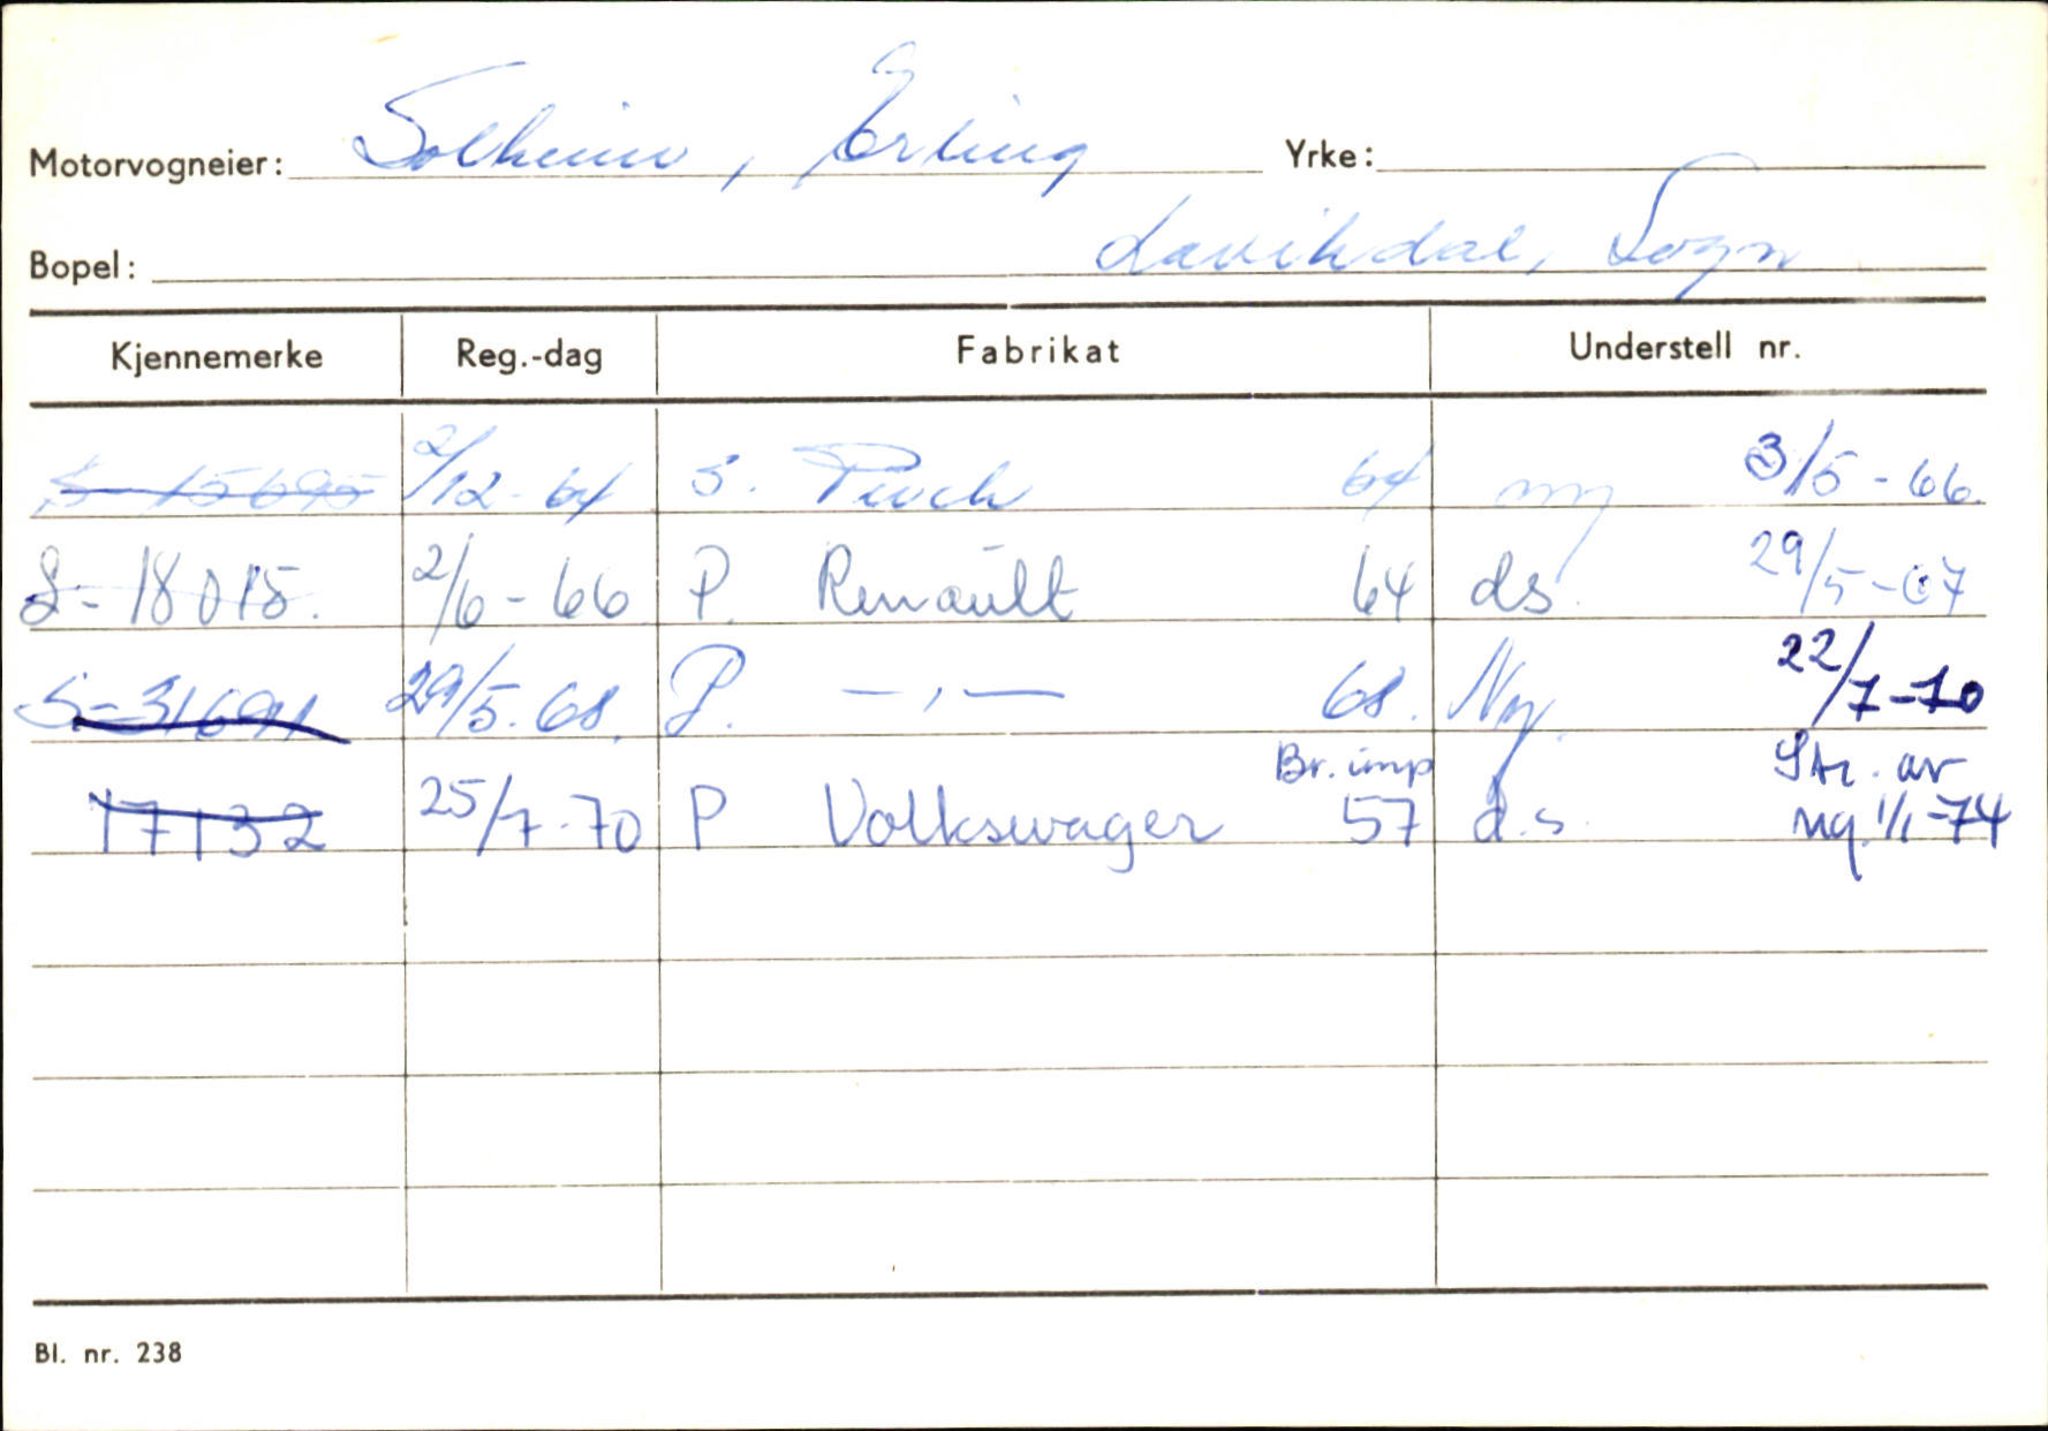 Motorvogneier: Solheim, Erling Yrke:
Bopel: Lavikdal, Sogn
Kjennemerke Reg.-dag Fabrikat Understell nr.
S-15695 2/12-64 S. Puch 64 ny 3/5-66
S-18015. 2/6-66 P. Renault 64 ds. 29/5-67
S-31691 29/5.68. P. —,— 68. Ny. 22/7-70
Br. imp Str. av
17132 25/7-70 P Volkswagen 57 d.s. ng. 1/1-74
Bl. nr. 238